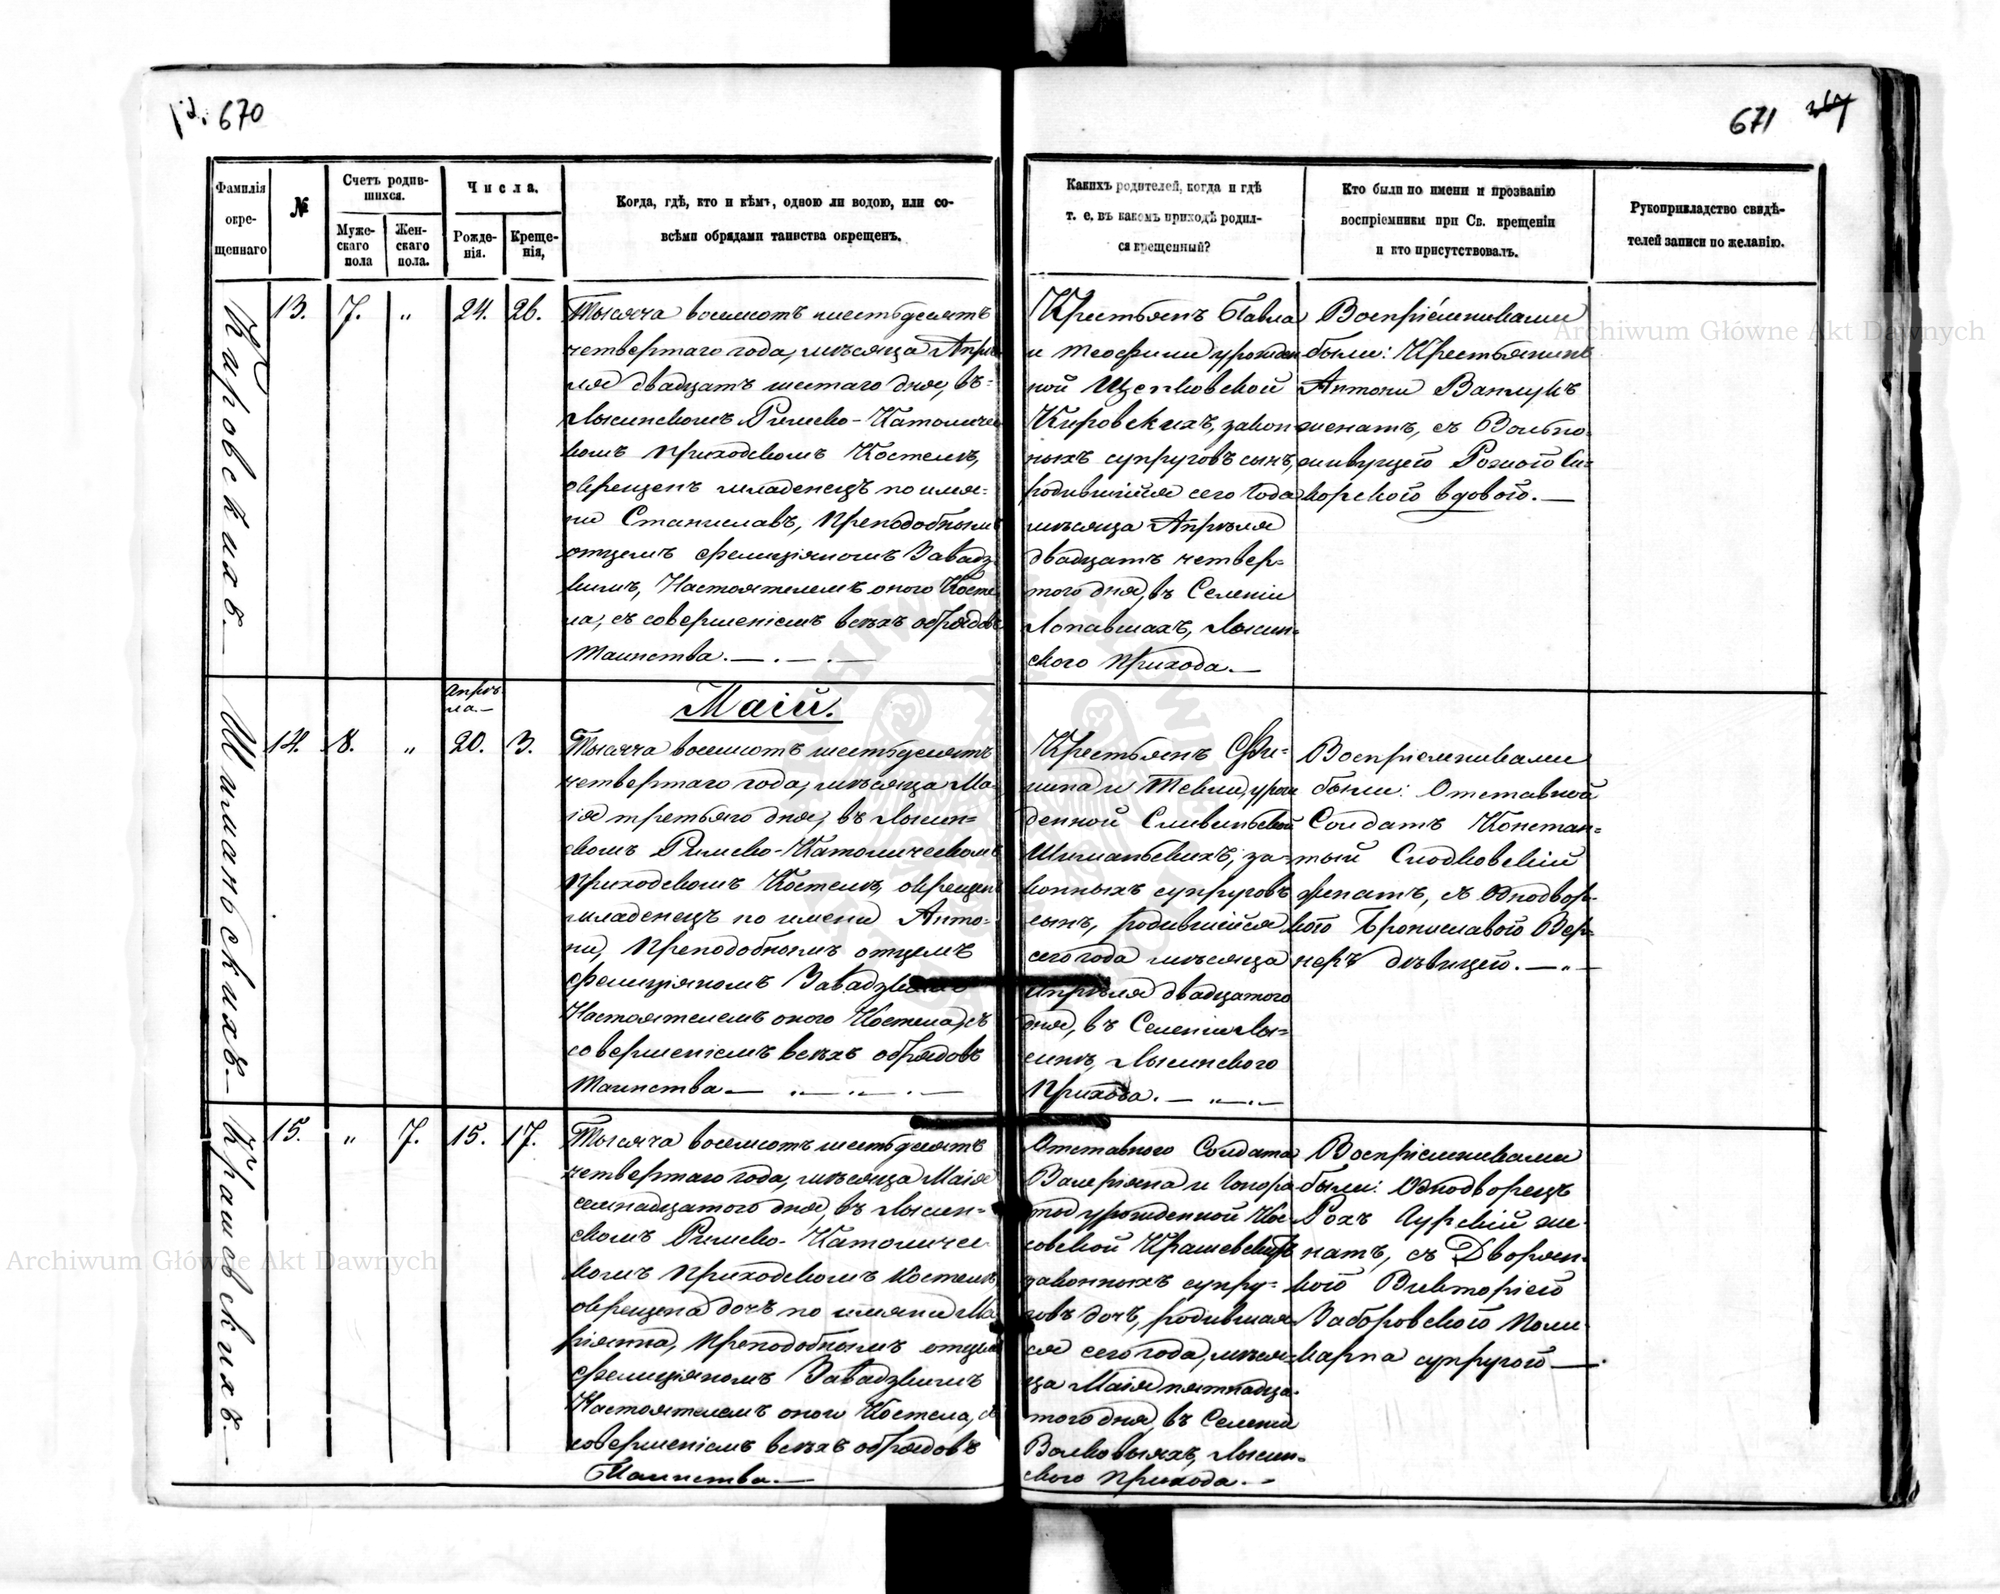 670
671
Фамилія окре- щеннаго
№
Счетъ родив- шихся.
Муже- скаго пола
Жен- скаго пола.
Числа.
Рожде- нія.
Креще- нія,
Когда, гдѣ, кто и кѣмъ, одною ли водою, или со-
всѣми обрядами таинства окрещенъ.
Какихъ родителей, когда и гдѣ
т. е. въ какомъ приходѣ родил-
ся крещенный?
Кто были по имени и прозванію
воспріемники при Св. крещеніи
и кто присутствовалъ.
Рукоприкладство свидѣ-
телей записи по желанію.
Кировскихъ.
13. 7. „ 24. 26.
Тысяча восемсотъ шестьдесятъ
четвертаго года, мѣсяца Апрѣ-
ля двадцать шестаго дня, въ
Лысинскомъ Римско-Католичес
комъ Приходскомъ Костелѣ,
окрещенъ младенецъ по имя=
ни Станиславъ, Преподобнымъ
отцемъ Фелиціяномъ Завадз
кимъ, Настоятелемъ оного Косте
ла, съ совершеніемъ всѣхъ обрядовъ
Таинства.
Крестьянъ Павла
и Теофили урожден
ной Щепковской
Кировскихъ, закон
ныхъ супруговъ сынъ,
родившійся сего года
мѣсяца Апрѣля
двадцать четвер=
того дня, въ Селеніи
Лопавшахъ, Лысин=
ского Прихода.
Воспріемниками
были: Крестьянинъ
Антони
женатъ, съ Вольно-
живущей
вдовой.
Шиманьскихъ.
Апрѣ ля.
14. 8. „ 20. 3.
Маій.
Тысяча восемсотъ шестьдесятъ
четвертаго года, мѣсяца Ма
ія третьяго дня, въ Лысин=
скомъ Римско-Католическомъ
Приходскомъ Костелѣ, окрещенъ
младенецъ по имени Анто=
ни, Преподобнымъ отцемъ
Фелиціяномъ Завадзкимъ
Настоятелемъ оного Костела, съ
совершеніемъ всѣхъ обрядовъ
Таинства
Крестьянъ Фи=
липа и Текли, урож
денной
Шиманьскихъ, за=
конныхъ супруговъ
сынъ, родившійся
сего года мѣсяца
Апрѣля двадцатого
дня, въ Селеніи Лы=
синѣ, Лысинского
Прихода.
Воспріемниками
были: Отставной
Солдатъ Констан=
тый Слодковскій
женатъ, съ Однодвор-
кою Брониславою Вер=
неръ дѣвицею.
Крашовскихъ.
15. „ 7. 15. 17.
Тысяча восемсотъ шестьдесятъ
четвертаго года, мѣсяца Маія
семнадцатого дня, въ Лысин=
скомъ Римско-Католичес
комъ Приходскомъ Костелѣ,
окрещена дочь по имяни Ма
ріянна, Преподобнымъ отцемъ
Фелиціяномъ Завадзкимъ
Настоятелемъ оного Костела, съ
совершеніемъ всѣхъ обрядовъ
Таинства.
Отставного Солдата
Валеріяна и Гонора
ты урожденной Кос=
совской Крашевскихъ
законныхъ супру=
говъ дочь, родившая
ся сего года, мѣся=
ца Маія пятнадца-
того дня, въ Селеніи
Волковыяхъ, Лысин=
ского Прихода.
Воспріемниками
были: Однодворецъ
Рохъ Гурскій же=
натъ, съ Дворян-
кой Викторіей
Заборовского Поли
карпа супругой
Archiwum Główne Akt Dawnych
Archiwum Główne Akt Dawnych